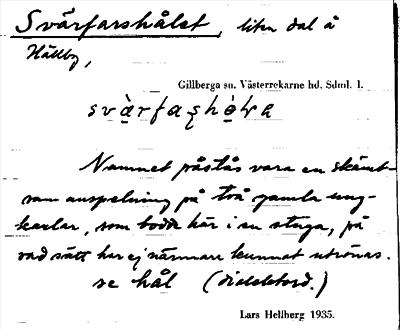 Svärfarshålet, liten dal å
Hällby,
Gillberga sn. Västerrekarne hd. Sdml. l.
Namnet påstås vara en skämt-
sam anspelning på två gamla ung-
karlar, som bodde här i en stuga, på
vad sätt har ej närmare kunnat utrönas.
se hål (dialektord.)
Lars Hellberg 1935.